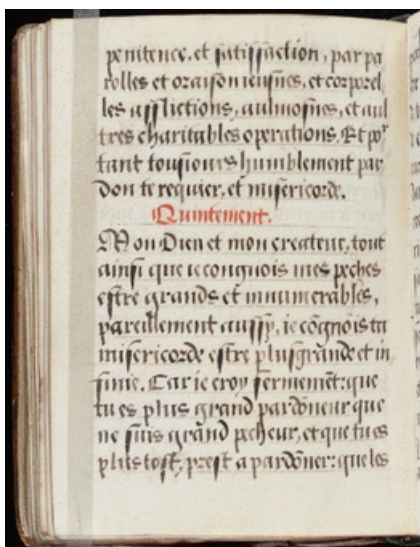 penitence. et satisfaction, par pa
rolles et oraison ieusnes, et corporel
les afflictions, aulmosnes, et aul
tres charitables operations. Et po^r
tant tousiours humblement par
don te requier, et misericorde.
Quintement.
Mon Dieu et mon createur, tout
ainsi que ie congnois mes peches
estre grands et innumerables,
pareillement aussy, ie cōgnois ta
misericorde estre plus grande et in
finie. Car ie croy fermemēt: que
tu es plus grand pardōneur que
ne suis grānd pecheur, et que tu es
plus tost, prest a pardōner: que les